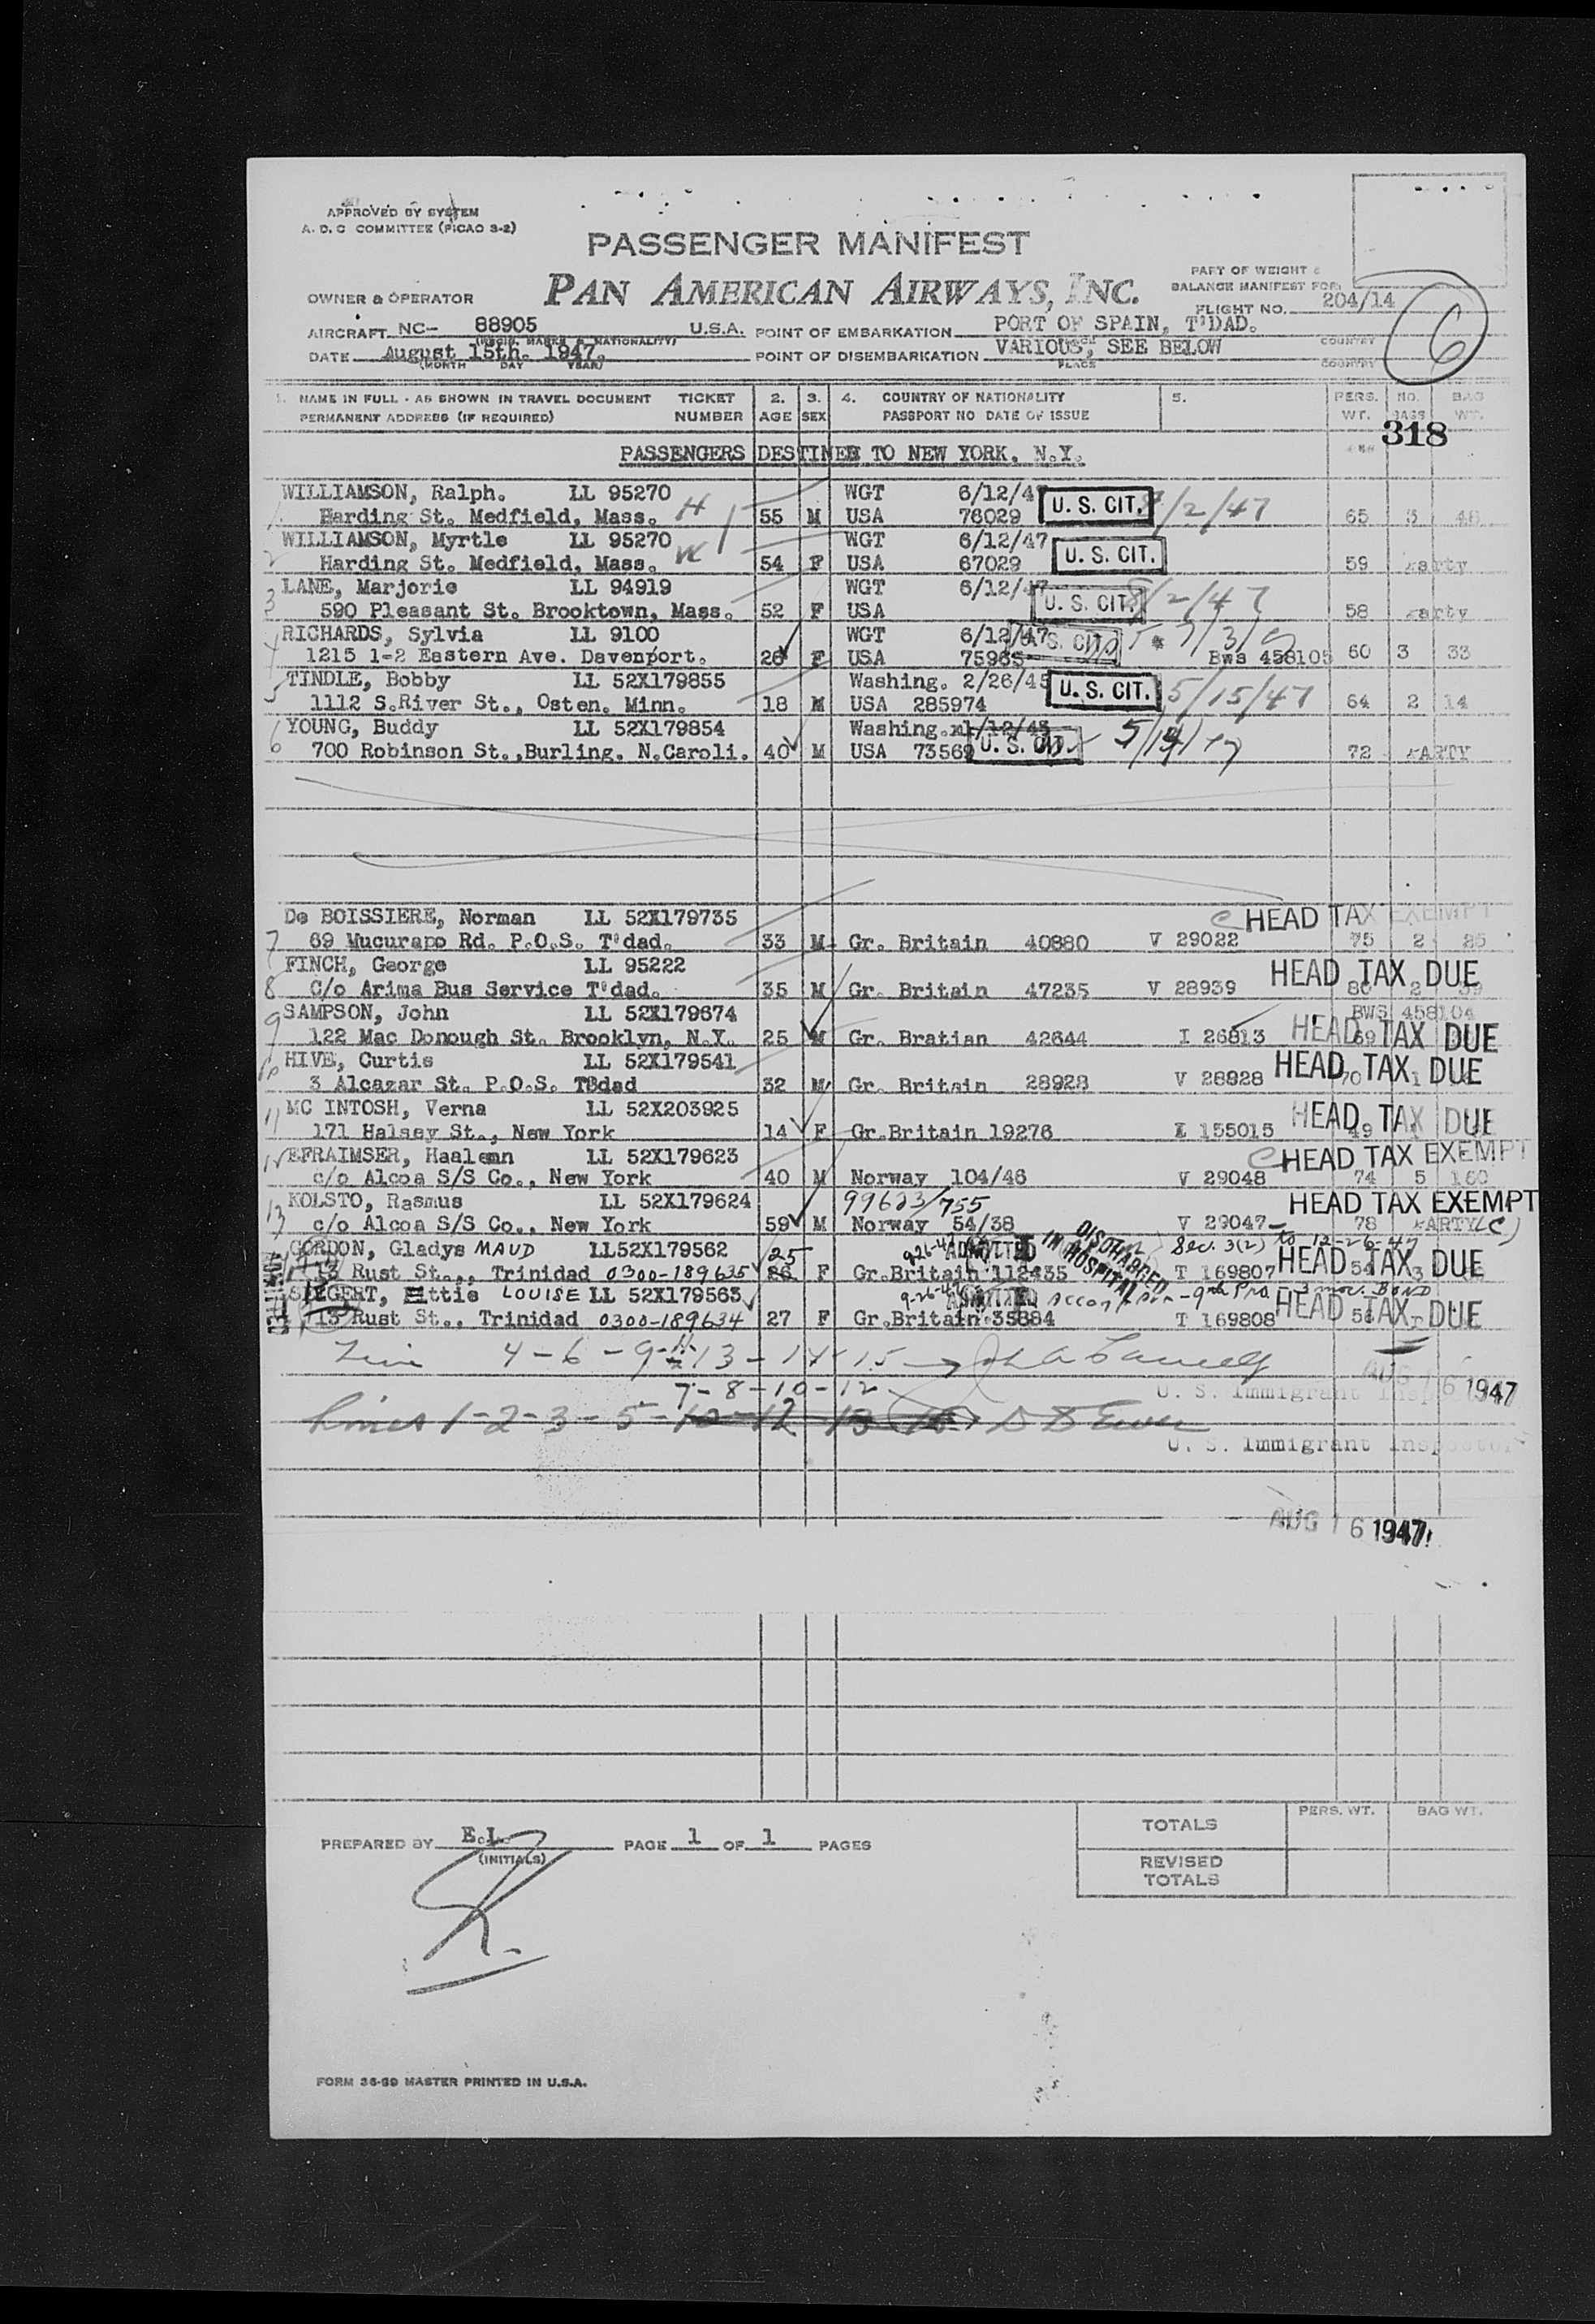 APPROVED BY SYSTEM
A. D. C COMMITTEE (PICAO 3-2)
PASSENGER MANIFEST
PAN AMERICAN AIRWAYS, INC.
PART OF WEIGHT &
BALANCE MANIFEST FOR
OWNER & OPERATOR
FLIGHT NO. 204/14
6
AIRCRAFT NC- 88905 U.S.A. POINT OF EMBARKATION PORT OF SPAIN, T'DAD.
(REGIS. MARKS & NATIONALITY) COUNTRY
DATE August 15th. 1947. POINT OF DISEMBARKATION VARIOUS, SEE BELOW
(MONTH DAY YEAR) PLACE COUNTRY
1. NAME IN FULL - AS SHOWN IN TRAVEL DOCUMENT TICKET 2. 3. 4. COUNTRY OF NATIONALITY 5. PERS. NO. BAG
PERMANENT ADDRESS (IF REQUIRED) NUMBER AGE SEX PASSPORT NO DATE OF ISSUE WT. BAGS WT.
318
PASSENGERS DESTINED TO NEW YORK, N.Y.
WILLIAMSON, Ralph. LL 95270 WGT 6/12/4
1 Harding St. Medfield, Mass. H 55 M USA 76029 U. S. CIT. 8/2/47 65 3 48
WILLIAMSON, Myrtle LL 95270 WGT 6/12/47
2 Harding St. Medfield, Mass. W 54 F USA 67029 U. S. CIT. 59 Party
LANE, Marjorie LL 94919 WGT 6/12/47
3 590 Pleasant St. Brooktown, Mass. 52 F USA U. S. CIT. 8/2/47 58 Party
RICHARDS, Sylvia LL 9100 WGT 6/12/47
4 1215 1-2 Eastern Ave. Davenport. 26 F USA 75965 U. S. CIT. Bws 458105 60 3 33
TINDLE, Bobby LL 52X179855 Washing. 2/26/45
5 1112 S.River St., Osten. Minn. 18 M USA 285974 U. S. CIT. 5/15/47 64 2 14
YOUNG, Buddy LL 52X179854 Washing.
6 700 Robinson St.,Burling. N.Caroli. 40 M USA 73569 U. S. CIT. 72 PARTY
De BOISSIERE, Norman LL 52X179735 C HEAD TAX EXEMPT
7 69 Mucurapo Rd. P.O.S. T'dad. 33 M Gr. Britain 40880 V 29022 75 2 25
FINCH, George LL 95222 HEAD TAX DUE
8 C/o Arima Bus Service T'dad. 35 M Gr. Britain 47235 V 28939 80 2 39
SAMPSON, John LL 52X179674 BWS 458104
9 122 Mac Donough St. Brooklyn, N.Y. 25 M Gr. Bratian 42644 I 26813 69 HEAD TAX DUE
HIVE, Curtis LL 52X179541 HEAD TAX DUE
10 3 Alcazar St. P.O.S. TBdad 32 M Gr. Britain 28928 V 28928 70 1
MC INTOSH, Verna LL 52X203925 HEAD TAX DUE
11 171 Halsey St., New York 14 F Gr.Britain 19276 I 155015 49
EFRAIMSER, Haaleman LL 52X179623 C HEAD TAX EXEMPT
12 c/o Alcoa S/S Co., New York 40 M Norway 104/46 V 29048 74 5 160
KOLSTO, Rasmus LL 52X179624 99623/755 HEAD TAX EXEMPT
13 c/o Alcoa S/S Co., New York 59 M Norway 54/38 V 29047 78 PARTY (C)
GORDON, Gladys MAUD LL52X179562 25 9-26-47 ADMITTED DISCHARGED IN HOSPITAL Sec. 3(2) to 12-26-47
13 Rust St., Trinidad 0300-189635 26 F Gr.Britain 112435 T 169807 HEAD TAX DUE 54 3
SIEGERT, Ettie LOUISE LL 52X179563 9-26-47 ADMITTED 3 mos. BOND
13 Rust St., Trinidad 0300-189634 27 F Gr.Britain 35884 T 169808 HEAD TAX DUE
Line 4-6-9-11-13-14-15
AUG 16 1947
7-8-10-12
U. S. Immigrant Inspector
Lines 1-2-3-5-10-12-13-15
U. S. Immigrant Inspector
AUG 16 1947
PREPARED BY E.L. PAGE 1 OF 1 PAGES
(INITIALS)
TOTALS PERS. WT. BAG WT.
REVISED
TOTALS
FORM 36-99 MASTER PRINTED IN U.S.A.